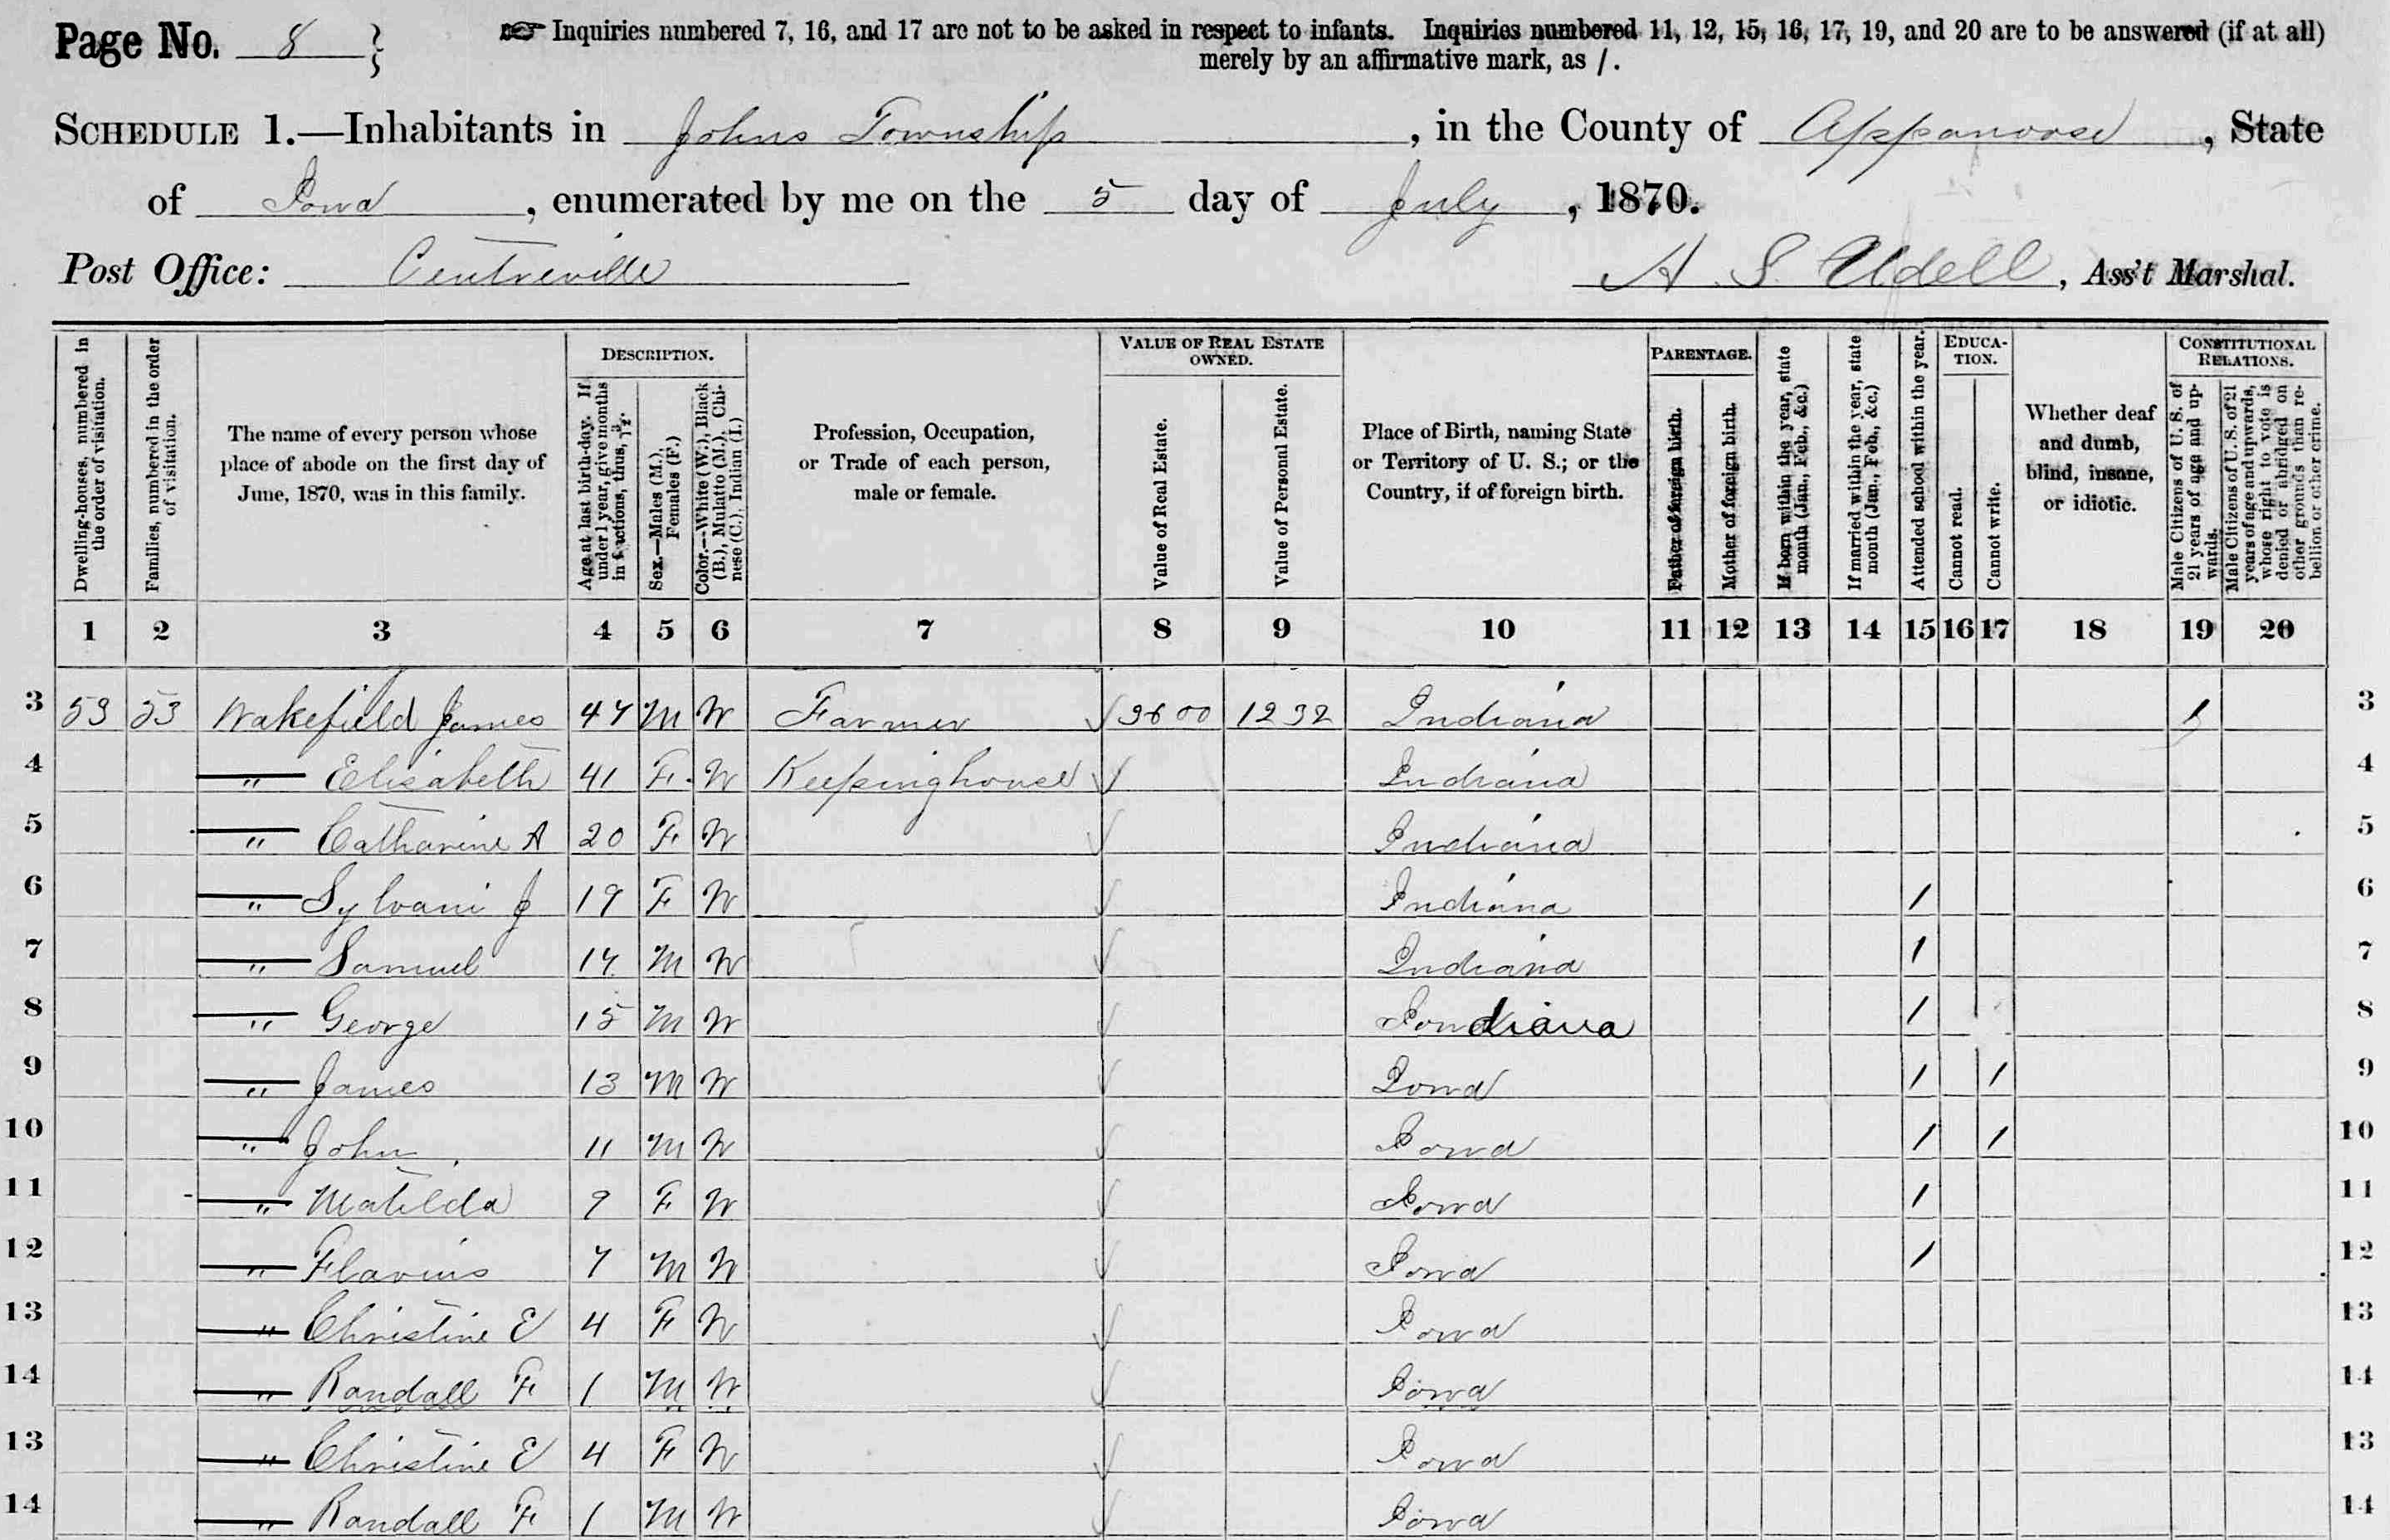 Page No. 8
Inquiries numbered 7, 16, and 17 are not to be asked in respect to infants. Inquiries numbered 11, 12, 15, 16, 17, 19, and 20 are to be answered (if at all)
merely by an affirmative mark, as /.
SCHEDULE 1.—Inhabitants in Johns Township, in the County of Appanoose, State
of Iowa, enumerated by me on the 5 day of July, 1870.
Post Office: Centreville
A. S. Udell, Ass't Marshal.
Dwelling-houses, numbered in the order of visitation.
Families, numbered in the order of visitation.
The name of every person whose place of abode on the first day of June, 1870, was in this family.
DESCRIPTION.
Age at last birth-day. If under 1 year, give months in fractions, thus, 3/12.
Sex.—Males (M.), Females (F.)
Color.—White (W.), Black (B.), Mulatto (M.), Chinese (C.), Indian (I.)
Profession, Occupation, or Trade of each person, male or female.
VALUE OF REAL ESTATE OWNED.
Value of Real Estate.
Value of Personal Estate.
Place of Birth, naming State or Territory of U. S.; or the Country, if of foreign birth.
PARENTAGE.
Father of foreign birth.
Mother of foreign birth.
If born within the year, state month (Jan., Feb., &c.)
If married within the year, state month (Jan., Feb., &c.)
Attended school within the year.
EDUCATION.
Cannot read.
Cannot write.
Whether deaf and dumb, blind, insane, or idiotic.
CONSTITUTIONAL RELATIONS.
Male Citizens of U. S. of 21 years of age and upwards.
Male Citizens of U. S. of 21 years of age and upwards, whose right to vote is denied or abridged on other grounds than rebellion or other crime.
1 2 3 4 5 6 7 8 9 10 11 12 13 14 15 16 17 18 19 20
3 53 53 Wakefield James 47 M W Farmer 3600 1232 Indiana / 3
4 " Elisabeth 41 F W Keeping house Indiana 4
5 " Catharine A 20 F W Indiana 5
6 " Sylvani J 19 F W Indiana / 6
7 " Samuel 17 M W Indiana / 7
8 " George 15 M W Iondiana / 8
9 " James 13 M W Iowa / / 9
10 " John 11 M W Iowa / / 10
11 " Matilda 9 F W Iowa / 11
12 " Flavius 7 M W Iowa / 12
13 " Christine E 4 F W Iowa 13
14 " Randall F 1 M W Iowa 14
13 " Christine E 4 F W Iowa 13
14 " Randall F 1 M W Iowa 14